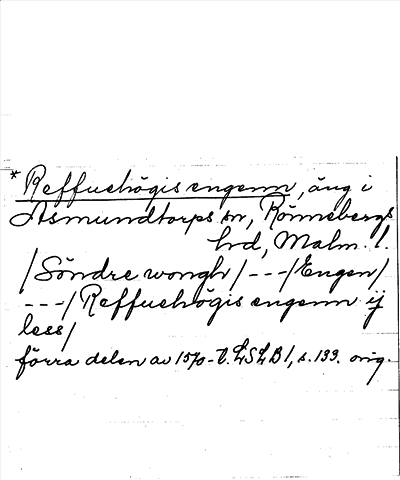 * Reffuehögis engenn, äng i
Asmundtorps sn, Rönnebergs
hrd, Malm. l.
/Söndre wongh/---/Engen/
---/Reffuehögis engenn ij
less/
förra delen av 1570-t. LSLB 1, s. 133. orig.